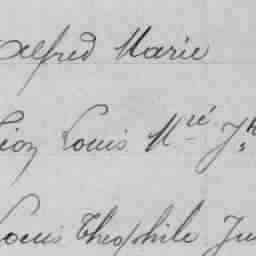 Alfred Marie
Léon Louis Mie Jh
Louis Theophile Ju